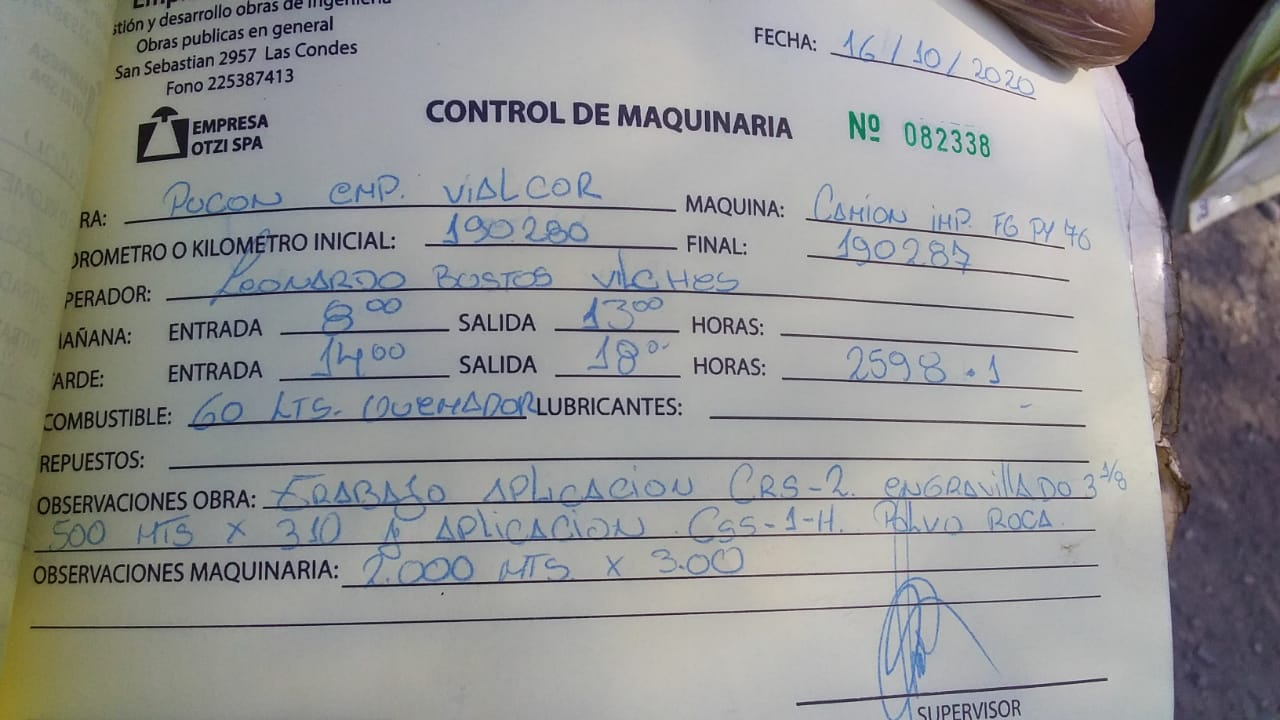 stión y desarrollo obras de ingeniería
Obras publicas en general
San Sebastian 2957 Las Condes
Fono 225387413
FECHA: 16/10/2020
EMPRESA
OTZI SPA
CONTROL DE MAQUINARIA Nº 082338
RA: PUCON EMP. VIALCOR MAQUINA: CAMION IMP. FG PY 76
OROMETRO O KILOMETRO INICIAL: 190280 FINAL: 190287
PERADOR: LEONARDO BUSTOS VILCHES
MAÑANA: ENTRADA 8:00 SALIDA 13:00 HORAS:
TARDE: ENTRADA 14:00 SALIDA 18:0 HORAS: 2598.1
COMBUSTIBLE: 60 LTS. QUEMADOR LUBRICANTES: -
REPUESTOS:
OBSERVACIONES OBRA: TRABAJO APLICACION CRS-2. ENGRAVILLADO 3/8
500 MTS X 310 APLICACION CSS-1-H. POLVO ROCA.
OBSERVACIONES MAQUINARIA: 2.000 MTS X 3.00
SUPERVISOR